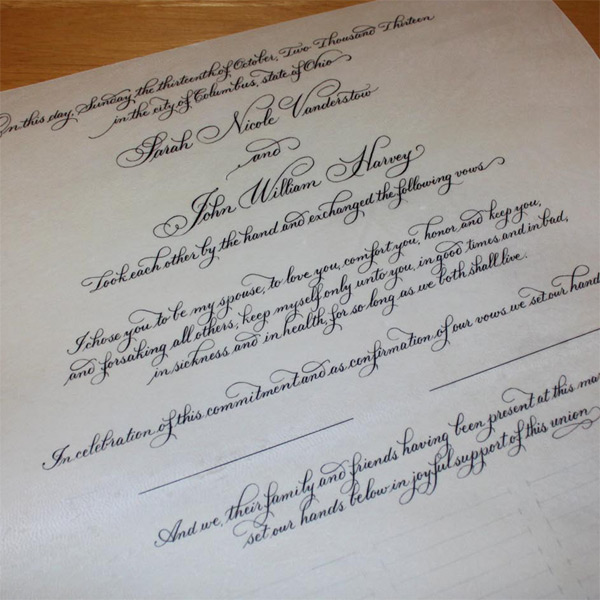 On this day, Sunday, the thirteenth of October, Two Thousand Thirteen
in the city of Columbus, state of Ohio
Sarah Nicole Vanderstow
and
John William Harvey
Took each other by the hand and exchanged the following vows
I chose you to be my spouse, to love you, comfort you, honor and keep you,
and forsaking all others, keep myself only unto you, in good times and in bad,
in sickness and in health, for so long as we both shall live.
In celebration of this commitment and as confirmation of our vows we set our hand
And we, their family and friends having been present at this
set our hands below in joyful support of this union